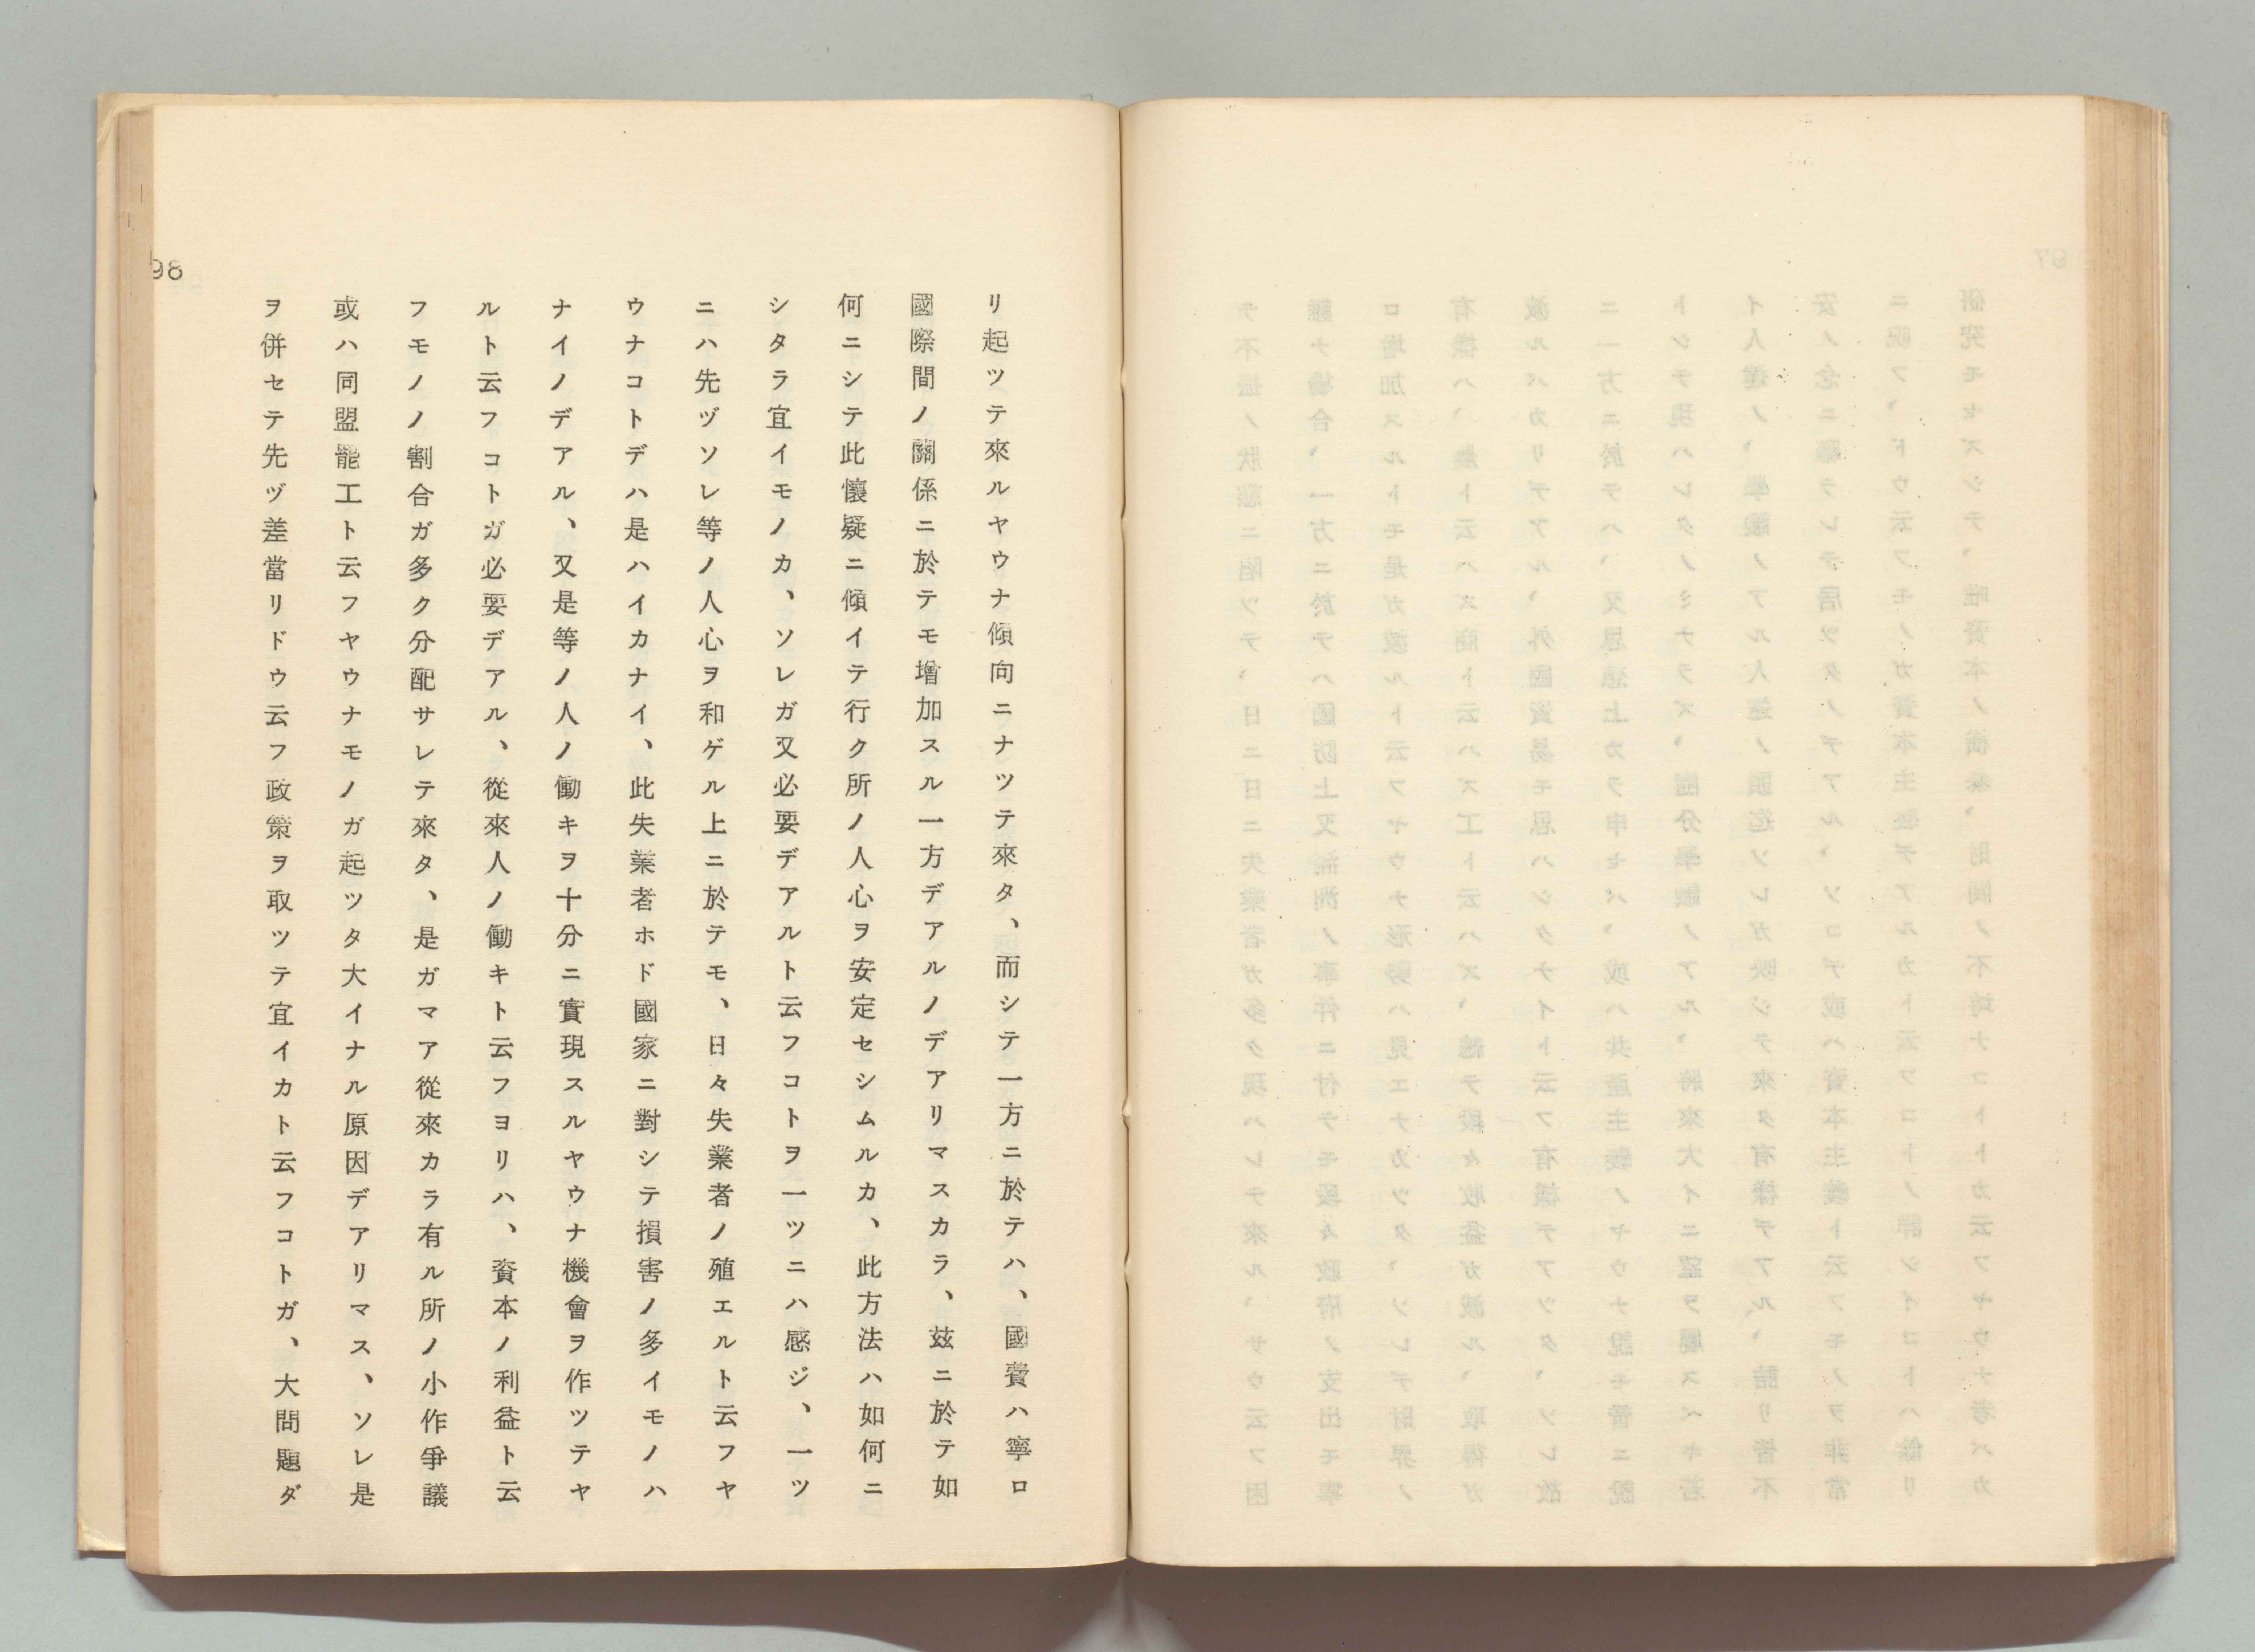 98
リ起ツテ來ルヤウナ傾向ニナツテ來タ、而シテ一方ニ於テハ、國費ハ寧ロ
國際間ノ關係ニ於テモ增加スル一方デアルノデアリマスカラ、玆ニ於テ如
何ニシテ此懷疑ニ傾イテ行ク所ノ人心ヲ安定セシムルカ、此方法ハ如何ニ
シタラ宜イモノカ、ソレガ又必要デアルト云フコトヲ一ツニハ感ジ、一ツ
ニハ先ヅソレ等ノ人心ヲ和ゲル上ニ於テモ、日々失業者ノ殖エルト云フヤ
ウナコトデハ是ハイカナイ、此失業者ホド國家ニ對シテ損害ノ多イモノハ
ナイノデアル、又是等ノ人ノ働キヲ十分ニ實現スルヤウナ機會ヲ作ツテヤ
ルト云フコトガ必要デアル、從來人ノ働キト云フヨリハ、資本ノ利益ト云
フモノノ割合ガ多ク分配サレテ來タ、是ガマア從來カラ有ル所ノ小作爭議
或ハ同盟罷工ト云フヤウナモノガ起ツタ大イナル原因デアリマス、ソレ是
ヲ併セテ先ヅ差當リドウ云フ政策ヲ取ツテ宜イカト云フコトガ、大問題ダ